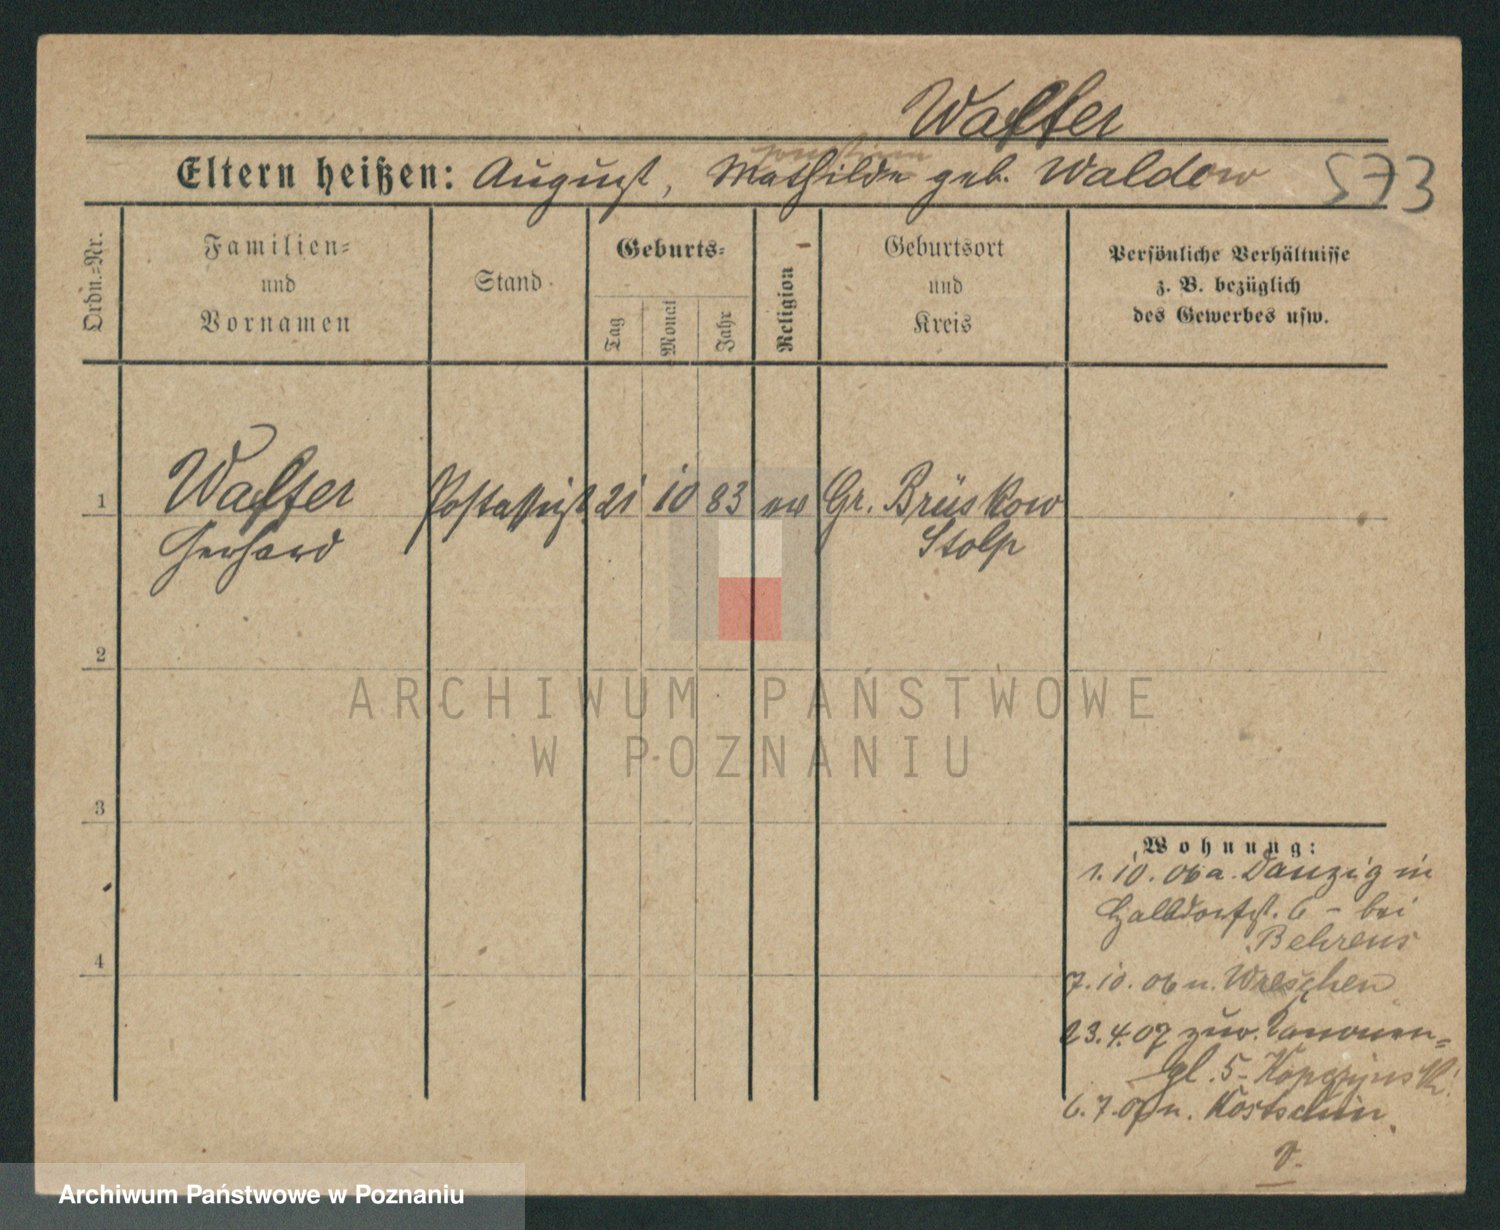 Walter
Eltern heißen: August, Mathilde geb. Waldow 573
Ordn.-Nr.
Familien-
und
Vornamen
Stand
Geburts-
Tag
Monat
Jahr
Religion
Geburtsort
und
Kreis
Persönliche Verhältnisse
z. B. bezüglich
des Gewerbes usw.
1
Walter Postassist. 21 10 83 ev Gr. Brüskow
Gerhard Stolp
2
3
4
Wohnung:
1.10.06 a. Danzig in
Halbdorfst. 6 - bei
Behrens
7.10.06 n. Wreschen
23.4.07 zur. Kanonen=
pl. 5 - Kopczynski
6.7.07 n. Kostschin
ARCHIWUM PAŃSTWOWE
W POZNANIU
Archiwum Państwowe w Poznaniu